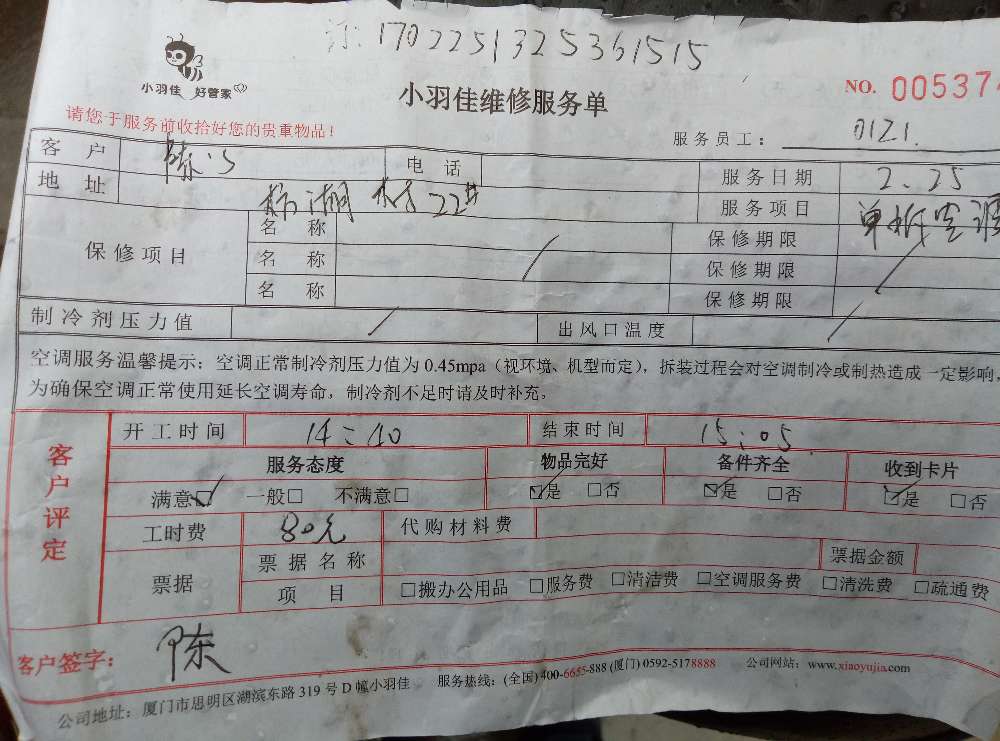 订: 1702251325361515
小羽佳 好管家
小羽佳维修服务单
NO. 00537
请您于服务前收拾好您的贵重物品!
服务员工: 0121.
客户 陈 电话 服务日期 2.25
地址 湖 22# 服务项目 单拆空调
保修项目 名称 / 保修期限 /
名称 保修期限
名称 保修期限
制冷剂压力值 / 出风口温度 /
空调服务温馨提示: 空调正常制冷剂压力值为 0.45mpa (视环境、机型而定), 拆装过程会对空调制冷或制热造成一定影响,
为确保空调正常使用延长空调寿命, 制冷剂不足时请及时补充。
客户评定
开工时间 14:40 结束时间 15:05
服务态度 物品完好 备件齐全 收到卡片
满意☑ 一般□ 不满意□ ☑是 □否 ☑是 □否 ☑是 □否
工时费 80元 代购材料费
票据 票据名称 票据金额
项目 □搬办公用品 □服务费 □清洁费 □空调服务费 □清洗费 □疏通费
客户签字: 陈
公司地址: 厦门市思明区湖滨东路 319 号 D 幢小羽佳 服务热线: (全国) 400-6655-888 (厦门) 0592-5178888 公司网站: www.xiaoyujia.com